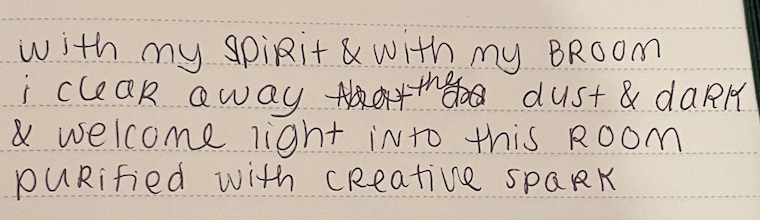 with my spiRit & with my BROOM
i cleaR away the dust & daRK
& welcome light iNto this ROOM
puRified with cReative spaRK